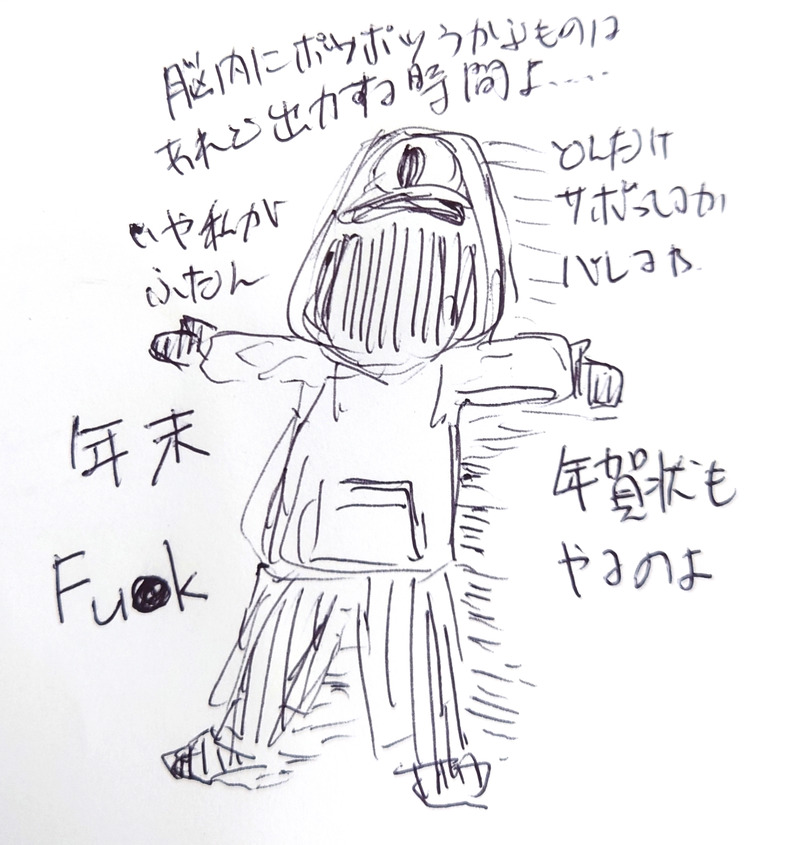 脳内にポツポツうかぶものは
あれど出力する時間よ……
どんだけ
サボってるか
バレるや
いや私が
年末
Fu●k
年賀状も
やるのよ